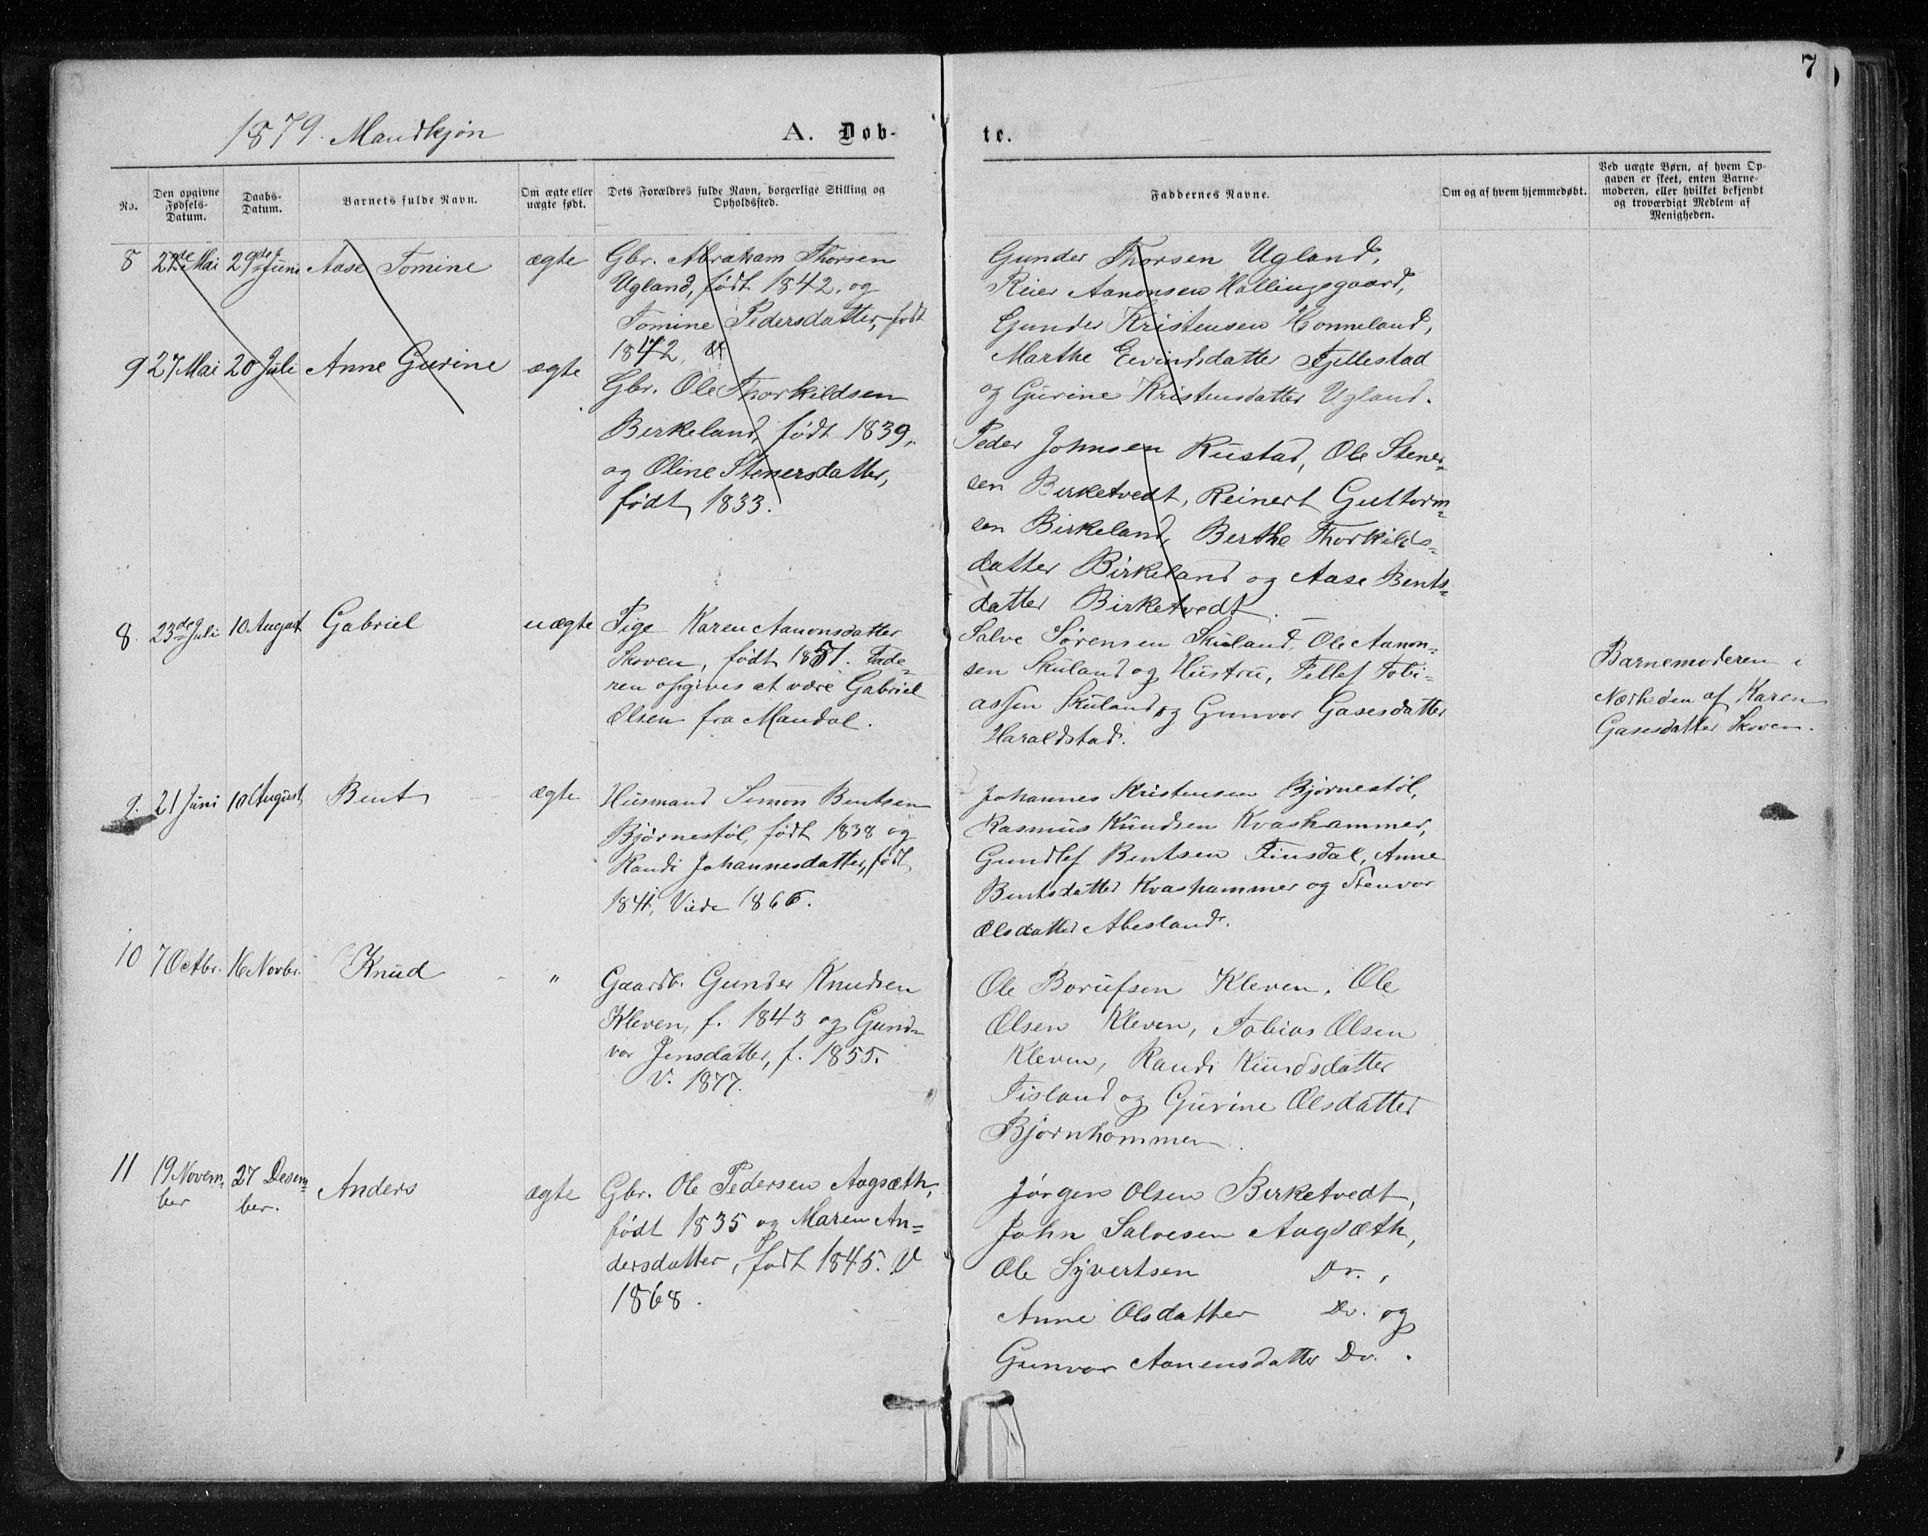 7
1879. Mandkjøn
A. Døb-
te.
No.
Den opgivne Fødsels-Datum.
Daabs-Datum.
Barnets fulde Navn.
Om ægte eller uægte født.
Dets Forældres fulde Navn, borgerlige Stilling og Opholdssted.
Faddernes Navne.
Om og af hvem hjemmedøbt.
Ved uægte Børn, af hvem Op-
gaven er skeet, enten Barne-
moderen, eller hvilket bekjendt
og troværdigt Medlem af
Menigheden.
8 27de Mai 29de Juni Aase Tomine ægte
Gbr. Abraham Thorsen
Ugland, født 1842, og
Tomine Pedersdatter, født
1842.
Gunder Thorsen Ugland,
Reier Aanonsen Hallingsgaard,
Gunder Kristensen Honneland,
Marthe Eivindsdatter Fjellestad
og Gurine Kristensdatter Ugland.
9 27 Mai 20 Juli Anne Gurine ægte
Gbr. Ole Thorkildsen
Birkeland, født 1839,
og Oline Stenersdatter,
født 1833.
Peder Johnsen Rustad, Ole Stener-
sen Birketvedt, Reinert Guttorm-
sen Birkeland, Berthe Thorkilds-
datter Birkeland og Aase Bents-
datter Birketvedt.
8 23de Juli 10 August Gabriel uægte
Pige Karen Aanonsdatter
Skoven, født 1851. Fade-
ren opgives at være Gabriel
Olsen fra Mandal.
Salve Sørensen Skuland, Ole Aanon-
sen Skuland og Hustru, Tellef Tobi-
assen Skuland og Gunvor Gasesdatter
Haraldstad.
Barnemoderen i
Nærheden af Karen
Gasesdatter Skoven.
9. 21 Juni 10 August Bent ægte
Husmand Simon Bentsen
Bjørnestøl, født 1838 og
Randi Johannesdatter, født
1841, Viede 1866.
Johannes Kristensen Bjørnestøl,
Rasmus Knudsen Kvashammer,
Gundlef Bentsen Finsdal, Anne
Bentsdatter Kvashammer og Stenvor
Olsdatter Abesland.
10 7 Octbr. 16 Novbr. Knud "
Gaardb. Gunder Knudsen
Kleven, f. 1843 og Gund-
vor Jensdatter, f. 1855.
V. 1877.
Ole Borufsen Kleven, Ole
Olsen Kleven, Tobias Olsen
Kleven, Randi Knudsdatter
Fisland og Gurine Olsdatter
Bjørnhommen.
11 19 Novem-
ber 27 Desem-
ber. Anders ægte
Gbr. Ole Pedersen Aagsæth,
født 1835 og Maren An-
dersdatter, født 1845. V
1868.
Jørgen Olsen Birketvedt,
John Salvesen Aagsæth,
Ole Syvertsen Do.,
Anne Olsdatter Do. og
Gunvor Aanensdatter Do.